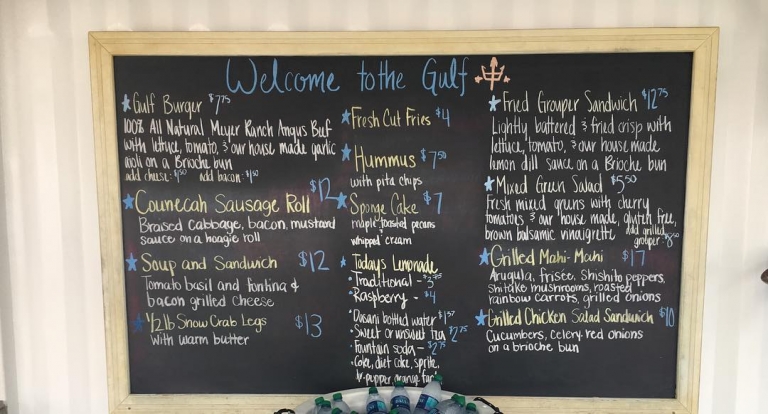 Welcome to the Gulf
Gulf Burger $7.75
100% All Natural Meyer Ranch Angus Beef
with lettuce, tomato, & our house made garlic
aioli on a Brioche bun
add cheese: $1.50 add bacon: $1.50
Counecah Sausage Roll $12
Braised cabbage, bacon, mustard
sauce on a hoagie roll
Soup and Sandwich $12
Tomato basil and fontina &
bacon grilled cheese
1/2 lb Snow Crab Legs $13
with warm butter
Fresh Cut Fries $4
Hummus $7.50
with pita chips
Sponge Cake $7
maple, toasted pecans
whipped cream
Todays Lemonade
Traditional - $3.75
Raspberry - $4
Dasani bottled water $1.57
Sweet or unsweet tea $2.75
Fountain soda - $2.75
Coke, diet coke, sprite,
dr. pepper, orange
Fried Grouper Sandwich $12.75
Lightly battered & fried crisp with
lettuce, tomato, & our house made
lemon dill sauce on a Brioche bun
Mixed Green Salad $5.50
Fresh mixed greens with cherry
tomatoes & our house made, gluten free,
brown balsamic vinaigrette add grilled
grouper
Grilled Mahi-Mahi $17
Arugula, frisée, Shishito peppers,
shitake mushrooms, roasted
rainbow carrots, grilled onions
Grilled Chicken Salad Sandwich $10
Cucumbers, Celery, red onions
on a brioche bun